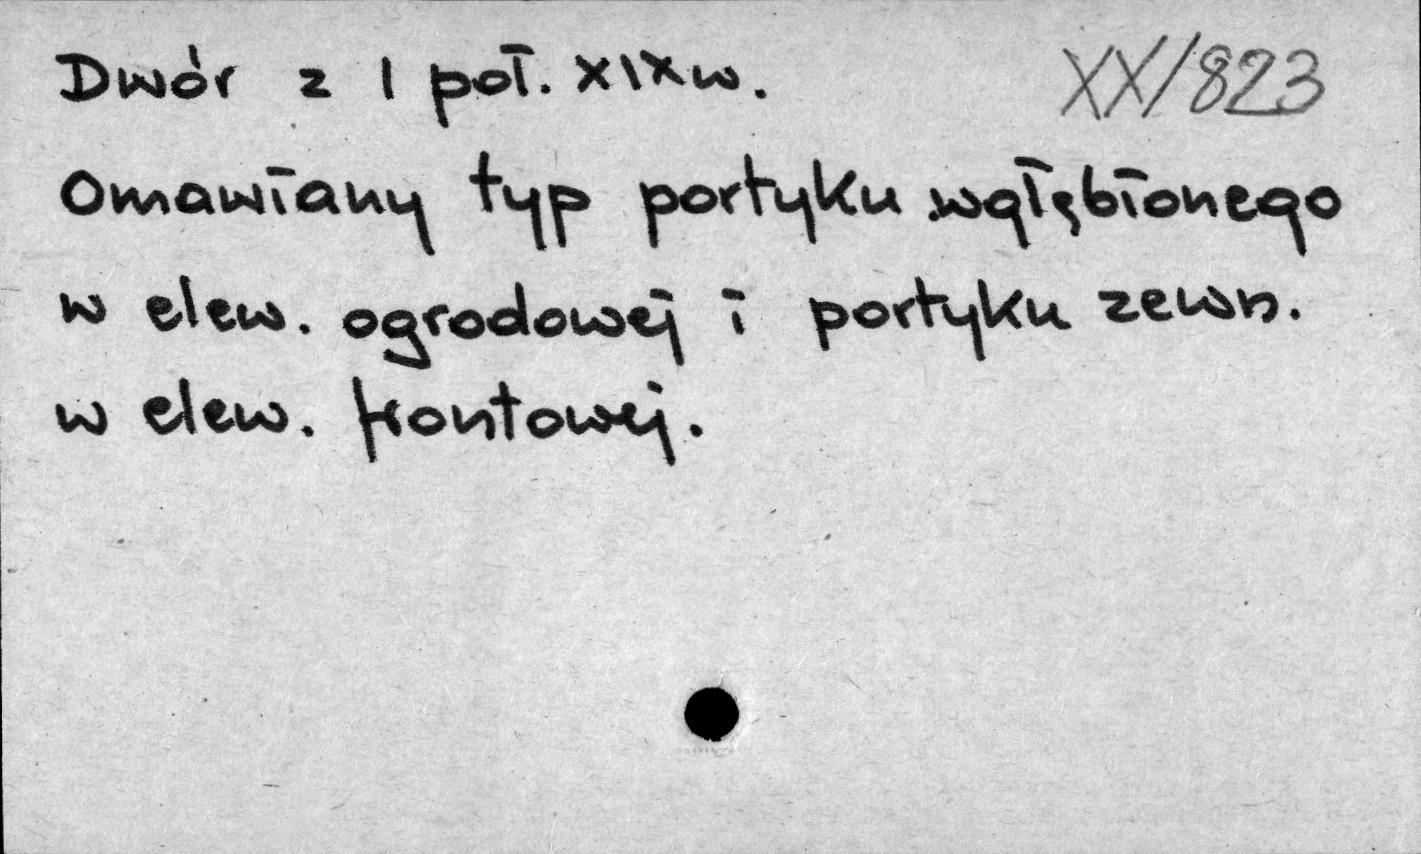 Dwór z I poł. XIX w. XX/823
Omawiany typ portyku wgłębionego
w elew. ogrodowej i portyku zewn.
w elew. frontowej.